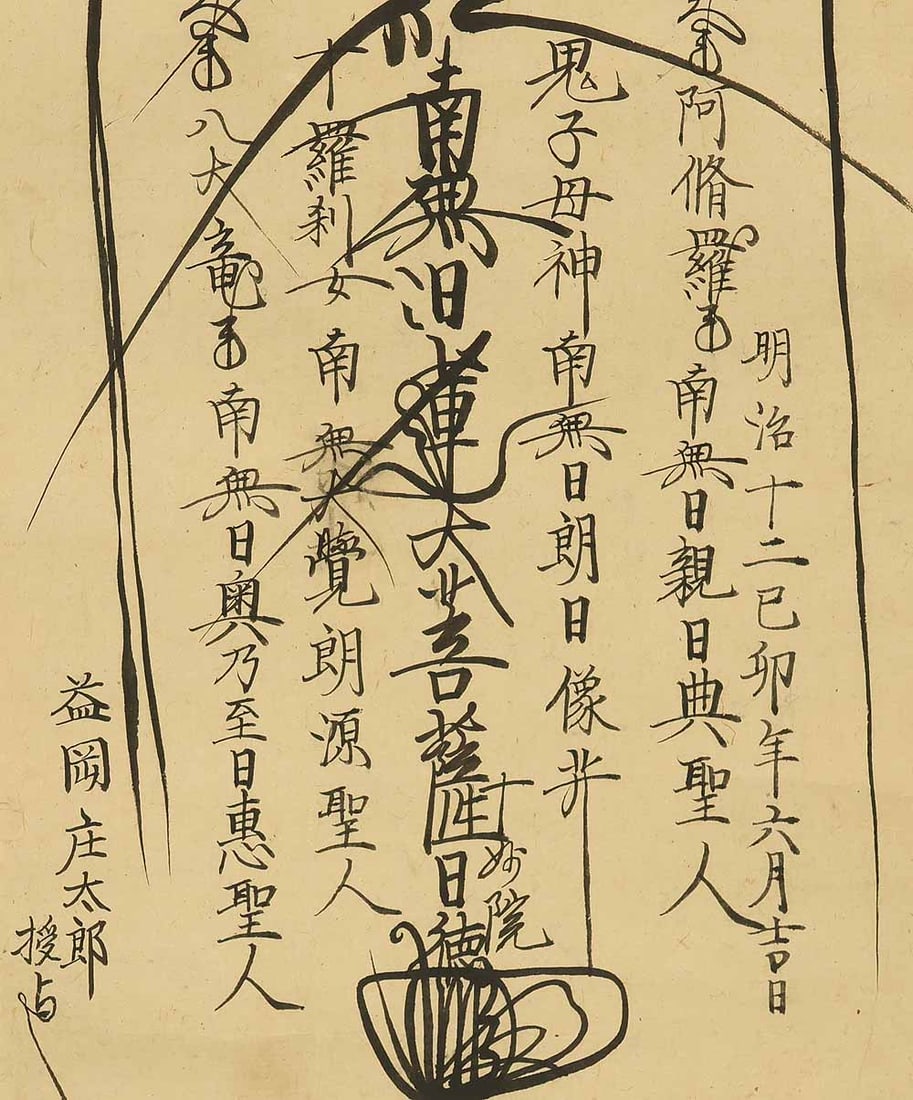 明治十二己卯年六月吉日
阿脩羅王南無日親日典聖人
鬼子母神南無日朗日像菩
南無日蓮大菩薩
十妙院
日徳
十羅刹女南無大覺朗源聖人
八大竜王南無日奥乃至日惠聖人
益岡庄太郎
授与